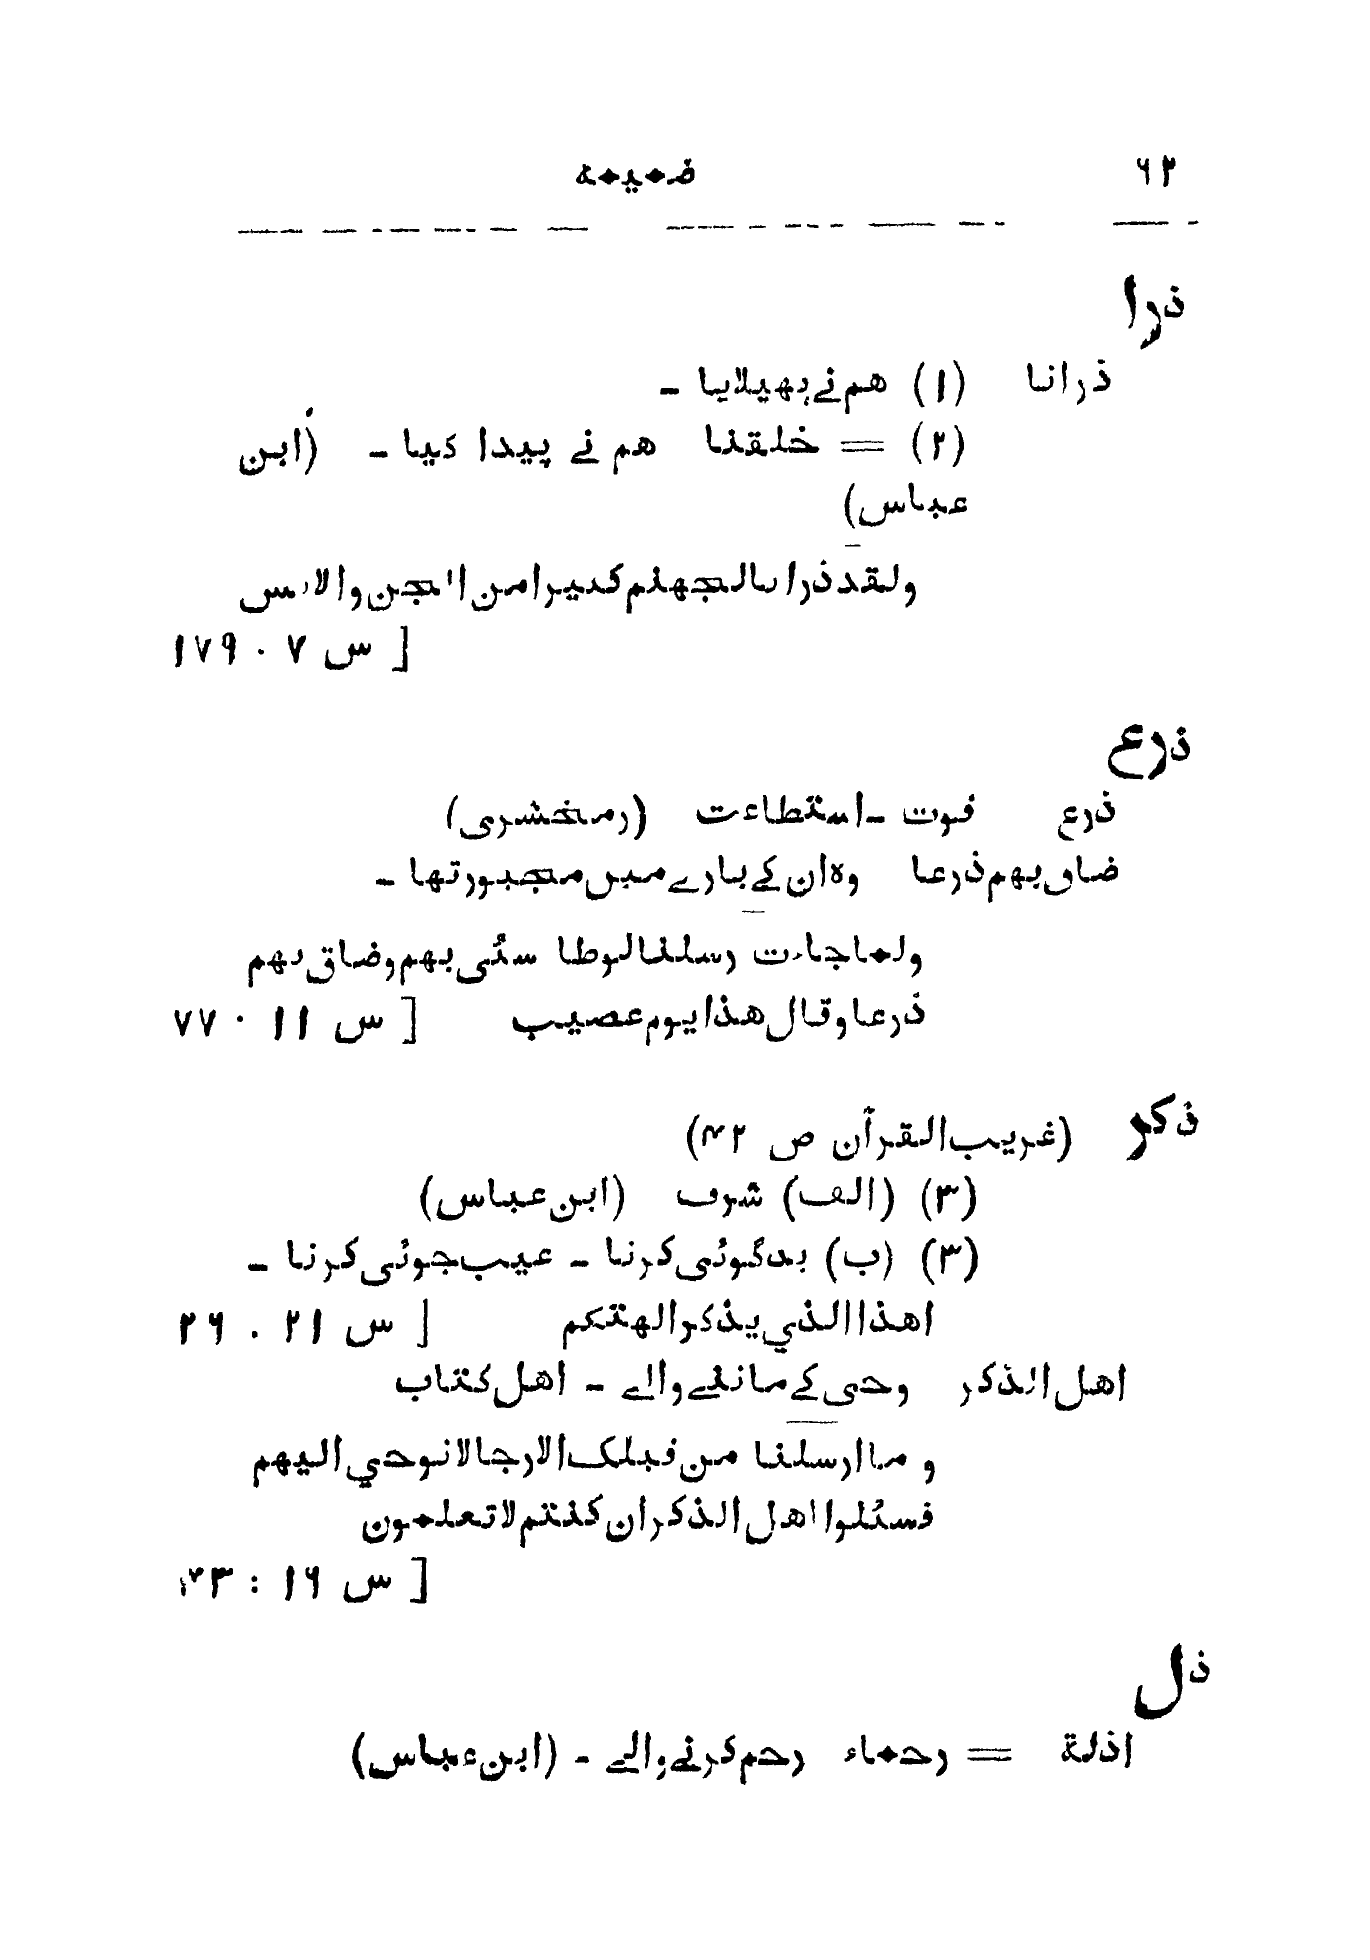 ۶۲ ضمیمہ
ذرا
ذرانا (۱) ھم نے پھیلایا ۔
(۲) = خلقنا ھم نے پیدا کیا ۔ (ابن
عباس)
ولقد ذرانا لجھنم کثیرا من الجن والانس
[ س ۷ ۰ ۱۷۹
ذرع
ذرع قوت ۔ استطاعت (زمخشری)
ضاق بھم ذرعا وہ ان کے بارے میں مجبور تھا ۔
ولما جاءت رسلنا لوطا سئی بھم و ضاق بھم
ذرعا و قال ھذا یوم عصیب [ س ۱۱ ۰ ۷۷
ذکر (غریب القرآن ص ۴۲)
(۳) (الف) شرف (ابن عباس)
(۳) (ب) بدگوئی کرنا ۔ عیب جوئی کرنا ۔
اھذا الذي یذکر الھتکم [ س ۲۱ . ۳۶
اھل الذکر وحی کے ماننے والے ۔ اھل کتاب
و ما ارسلنا من قبلک الا رجالا نوحي الیھم
فسئلوا اھل الذکر ان کنتم لا تعلمون
[ س ۱۶ : ۴۳
ذل
اذلة = رحماء رحم کرنے والے ۔ (ابن عباس)